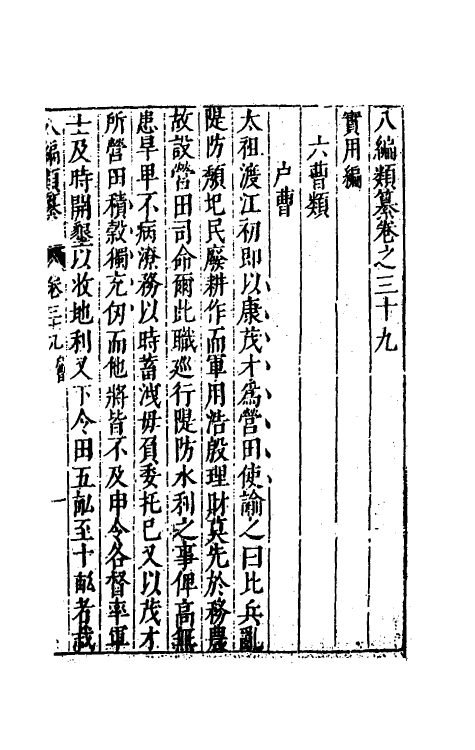 八編類纂卷之三十九
實用編
六曹類
户曹
太祖渡江初即以康茂才爲營田使諭之曰比兵亂
隄防頹圮民廢耕作而軍用浩殷理財莫先於務農
故設營田司命爾此職廵行隄防水利之事俾高無
患旱卑不病潦務以時蓄洩毋負委托已又以茂才
所營田積糓獨充仞而他將皆不及申令各督率軍
士及時開墾以收地利又下令田五畝至十畝者栽
八編類纂 卷三十九 一